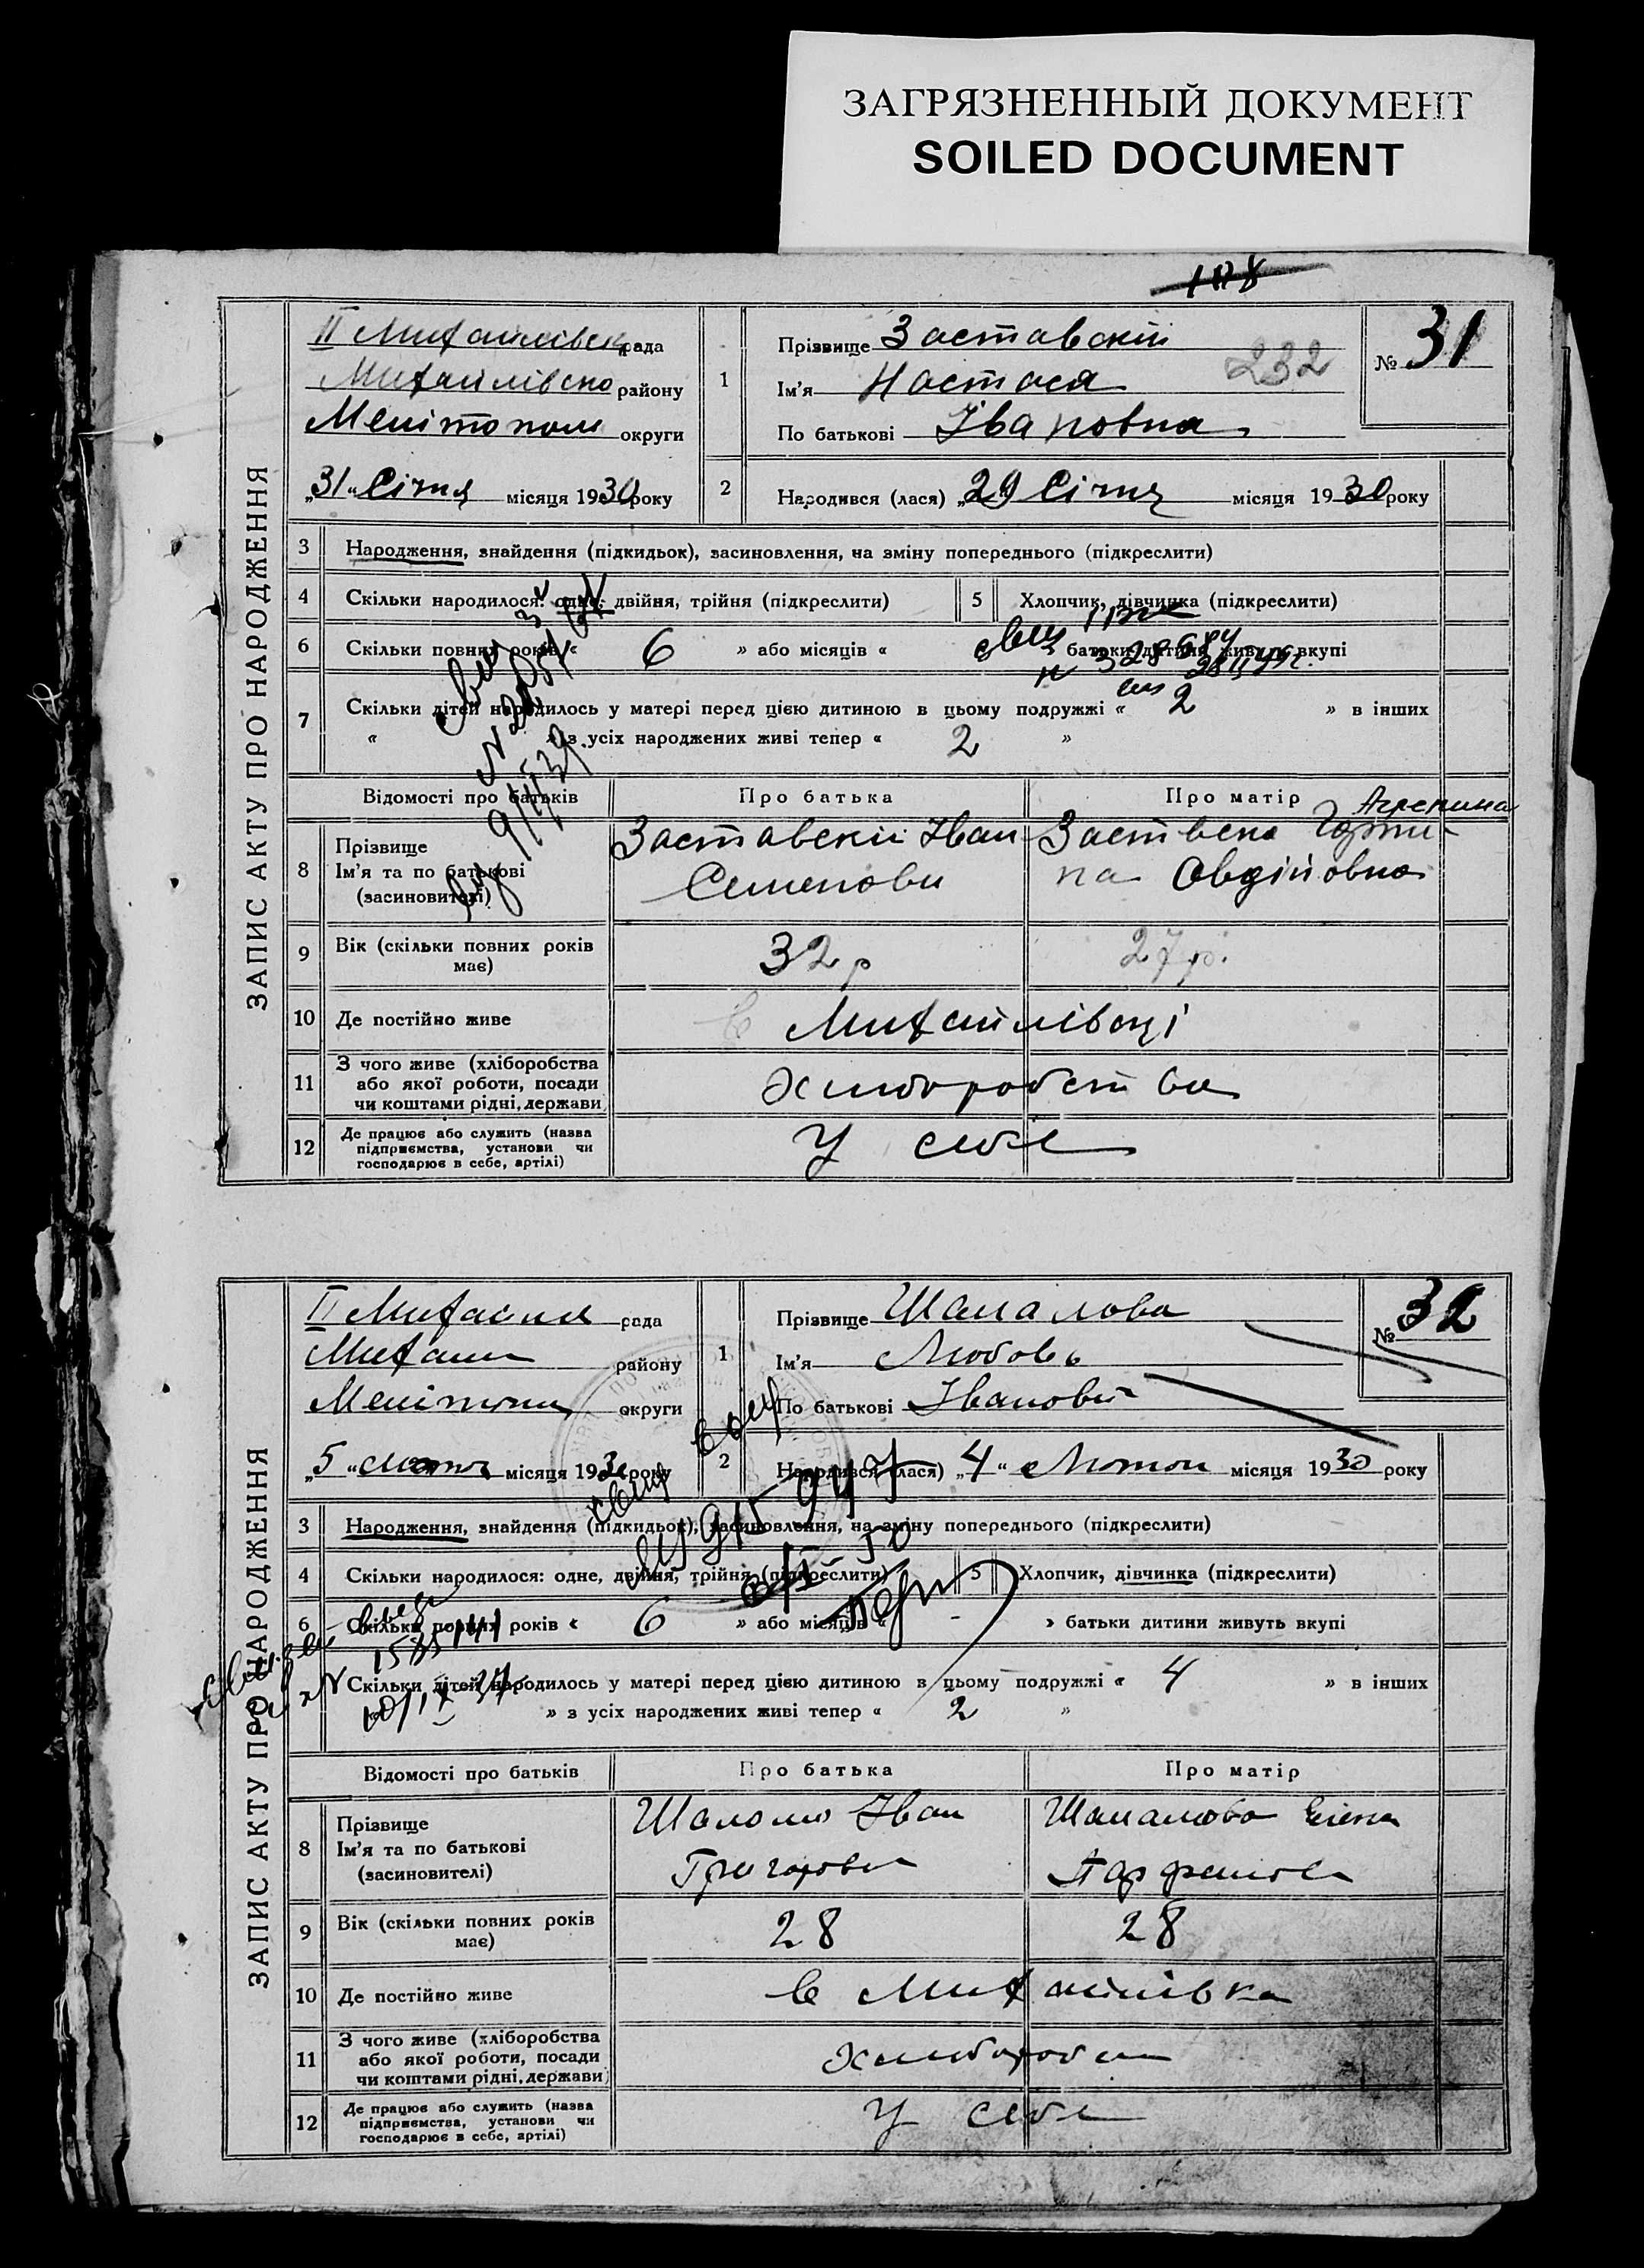 ЗАГРЯЗНЕННЫЙ ДОКУМЕНТ
SOILED DOCUMENT
118
ЗАПИС АКТУ ПРО НАРОДЖЕННЯ
II Михайлівськ рада
Михайлівсько району
Мелітополь округи
„31“ Січня місяця 1930 року
1
Прізвище Заставскій
232
Ім'я Настася
По батькові Івановна
№ 31
2
Народився (лася) „29 Січня місяця 1930 року
3 Народження, знайдення (підкидьок), засиновлення, на зміну попереднього (підкреслити)
4 Скільки народилося: одне, двійня, трійня (підкреслити)
5 Хлопчик, дівчинка (підкреслити)
6 Скільки повних років « 6 » або місяців « батьки дитини живуть вкупі
7 Скільки дітей народилось у матері перед цією дитиною в цьому подружжі « 2 » в інших
« » з усіх народжених живі тепер « 2 »
Відомості про батьків
Про батька
Про матір
8 Прізвище
Ім'я та по батькові
(засновителі)
Заставскій Іван
Семенови
Агрепина
на Овдійовна
9 Вік (скільки повних років має)
32 р
27 р.
10 Де постійно живе
в Михайлівці
11 З чого живе (хліборобства
або якої роботи, посади
чи коштами рідні, держави)
Хліборобства
12 Де працює або служить (назва
підприємства, установи чи
господарює в себе, артілі)
У себе
ЗАПИС АКТУ ПРО НАРОДЖЕННЯ
II Михайл рада
Михайл району
Мелітопол округи
„5“ місяця 1930 року
1
Прізвище Шамалова
Ім'я Любовь
По батькові Іванові
№ 32
2
Народився (лася) „4“ Лютого місяця 1930 року
3 Народження, знайдення (підкидьок), засиновлення, на зміну попереднього (підкреслити)
4 Скільки народилося: одне, двійня, трійня (підкреслити)
5 Хлопчик, дівчинка (підкреслити)
6 Скільки повних років « 6 » або місяців « - » батьки дитини живуть вкупі
Скільки дітей народилось у матері перед цією дитиною в цьому подружжі « 4 » в інших
» з усіх народжених живі тепер « 2 »
Відомості про батьків
Про батька
Про матір
8 Прізвище
Ім'я та по батькові
(засиновителі)
Іван
Григорови
Шамалова Елена
9 Вік (скільки повних років має)
28
28
10 Де постійно живе
в Михайлівка
11 З чого живе (хліборобства
або якої роботи, посади
чи коштами рідні, держави)
Хлібороб
12 Де працює або служить (назва
підприємства, установи чи
господарює в себе, артілі)
У себе